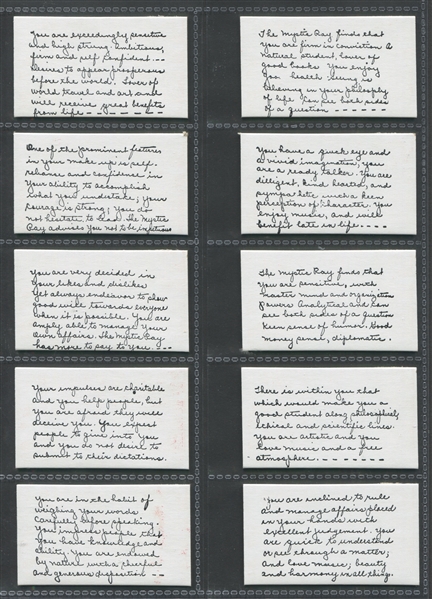 You are exceedingly sensitive
and high strung. Ambitious,
firm and self confident. --
desires to appear prosperous
before the world. Lover of
world travel and art and
will receive great benefits
from life -- -- -- --
One of the prominent features
in your make up is self-
reliance and confidence in
your ability to accomplish
what you undertake; your
courage is strong. You do
not hesitate to lead. The Mystic
Ray advises you not to be impetuous
You are very decided in
your likes and dislikes
Yet always endeavor to show
good will towards everyone
when it is possible. You are
amply able to manage your
own affairs. The Mystic Ray
has more to say to you --
Your impulses are charitable
and you help people, but
you are afraid they will
deceive you. You expect
people to give into you
and you do not desire to
submit to their dictations.
You are in the habit of
weighing your words
carefully before speaking.
You impress people that
you have knowledge and
ability. You are endowed
by nature with a cheerful
and generous disposition --
The Mystic Ray finds that
you are firm in conviction a
natural student, lover of
good books You enjoy
good health seeing is
believing in your philosophy
of life. Can see both sides
of a question -- -- -- --
You have a quick eye and
a vivid imagination, you
are a ready talker. You are
diligent, kind hearted, and
sympathetic with a keen
perception of character. You
enjoy music, and will
benefit late in life. -- -- --
The Mystic Ray finds that
you are sensitive, with
master mind and organization
powers Analytical and can
see both sides of a question
Keen sense of humor. Good
money sense, diplomatic.
There is within you that
which would make you a
good student along philosophical,
ethical and scientific lines.
You are artistic and you
love music and a free
atmosphere. -- -- -- --
You are inclined to rule
and manage affairs placed
in your hands with
excellent judgement. You
are quick to understand
or see through a matter;
and love music, beauty
and harmony in all things.